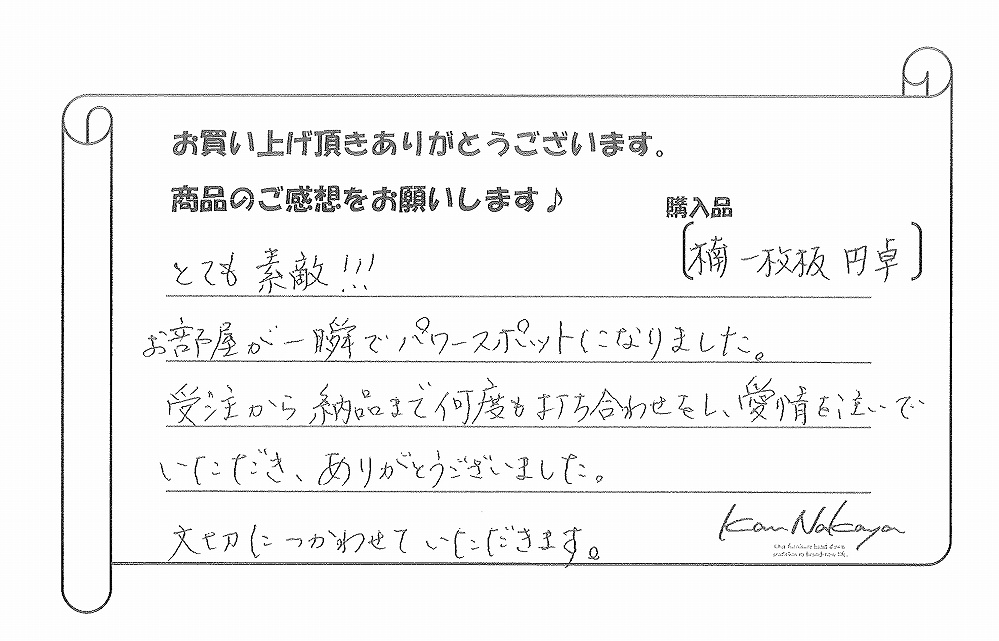 お買い上げ頂きありがとうございます。
商品のご感想をお願いします♪
購入品
[楠 一枚板 円卓]
とても 素敵!!!
お部屋が一瞬でパワースポットになりました。
受注から 納品まで何度も打ち合わせをし、愛情を注いで
いただき、ありがとうございました。
大切につかわせていただきます。
Kan Nakaya